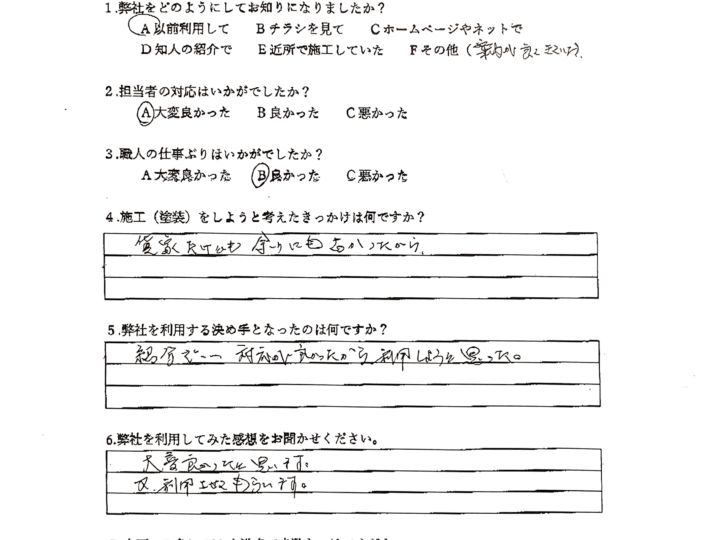 1.弊社をどのようにしてお知りになりましたか?
A以前利用して Bチラシを見て Cホームページやネットで
D知人の紹介で E近所で施工していた Fその他(
2.担当者の対応はいかがでしたか?
A大変良かった B良かった C悪かった
3.職人の仕事ぶりはいかがでしたか?
A大変良かった B良かった C悪かった
4.施工(塗装)をしようと考えたきっかけは何ですか?
余りにも から、
5.弊社を利用する決め手となったのは何ですか?
対応が良かったから利用しようと思った。
6.弊社を利用してみた感想をお聞かせください。
大変良かったと思います。
又、利用させてもらいます。